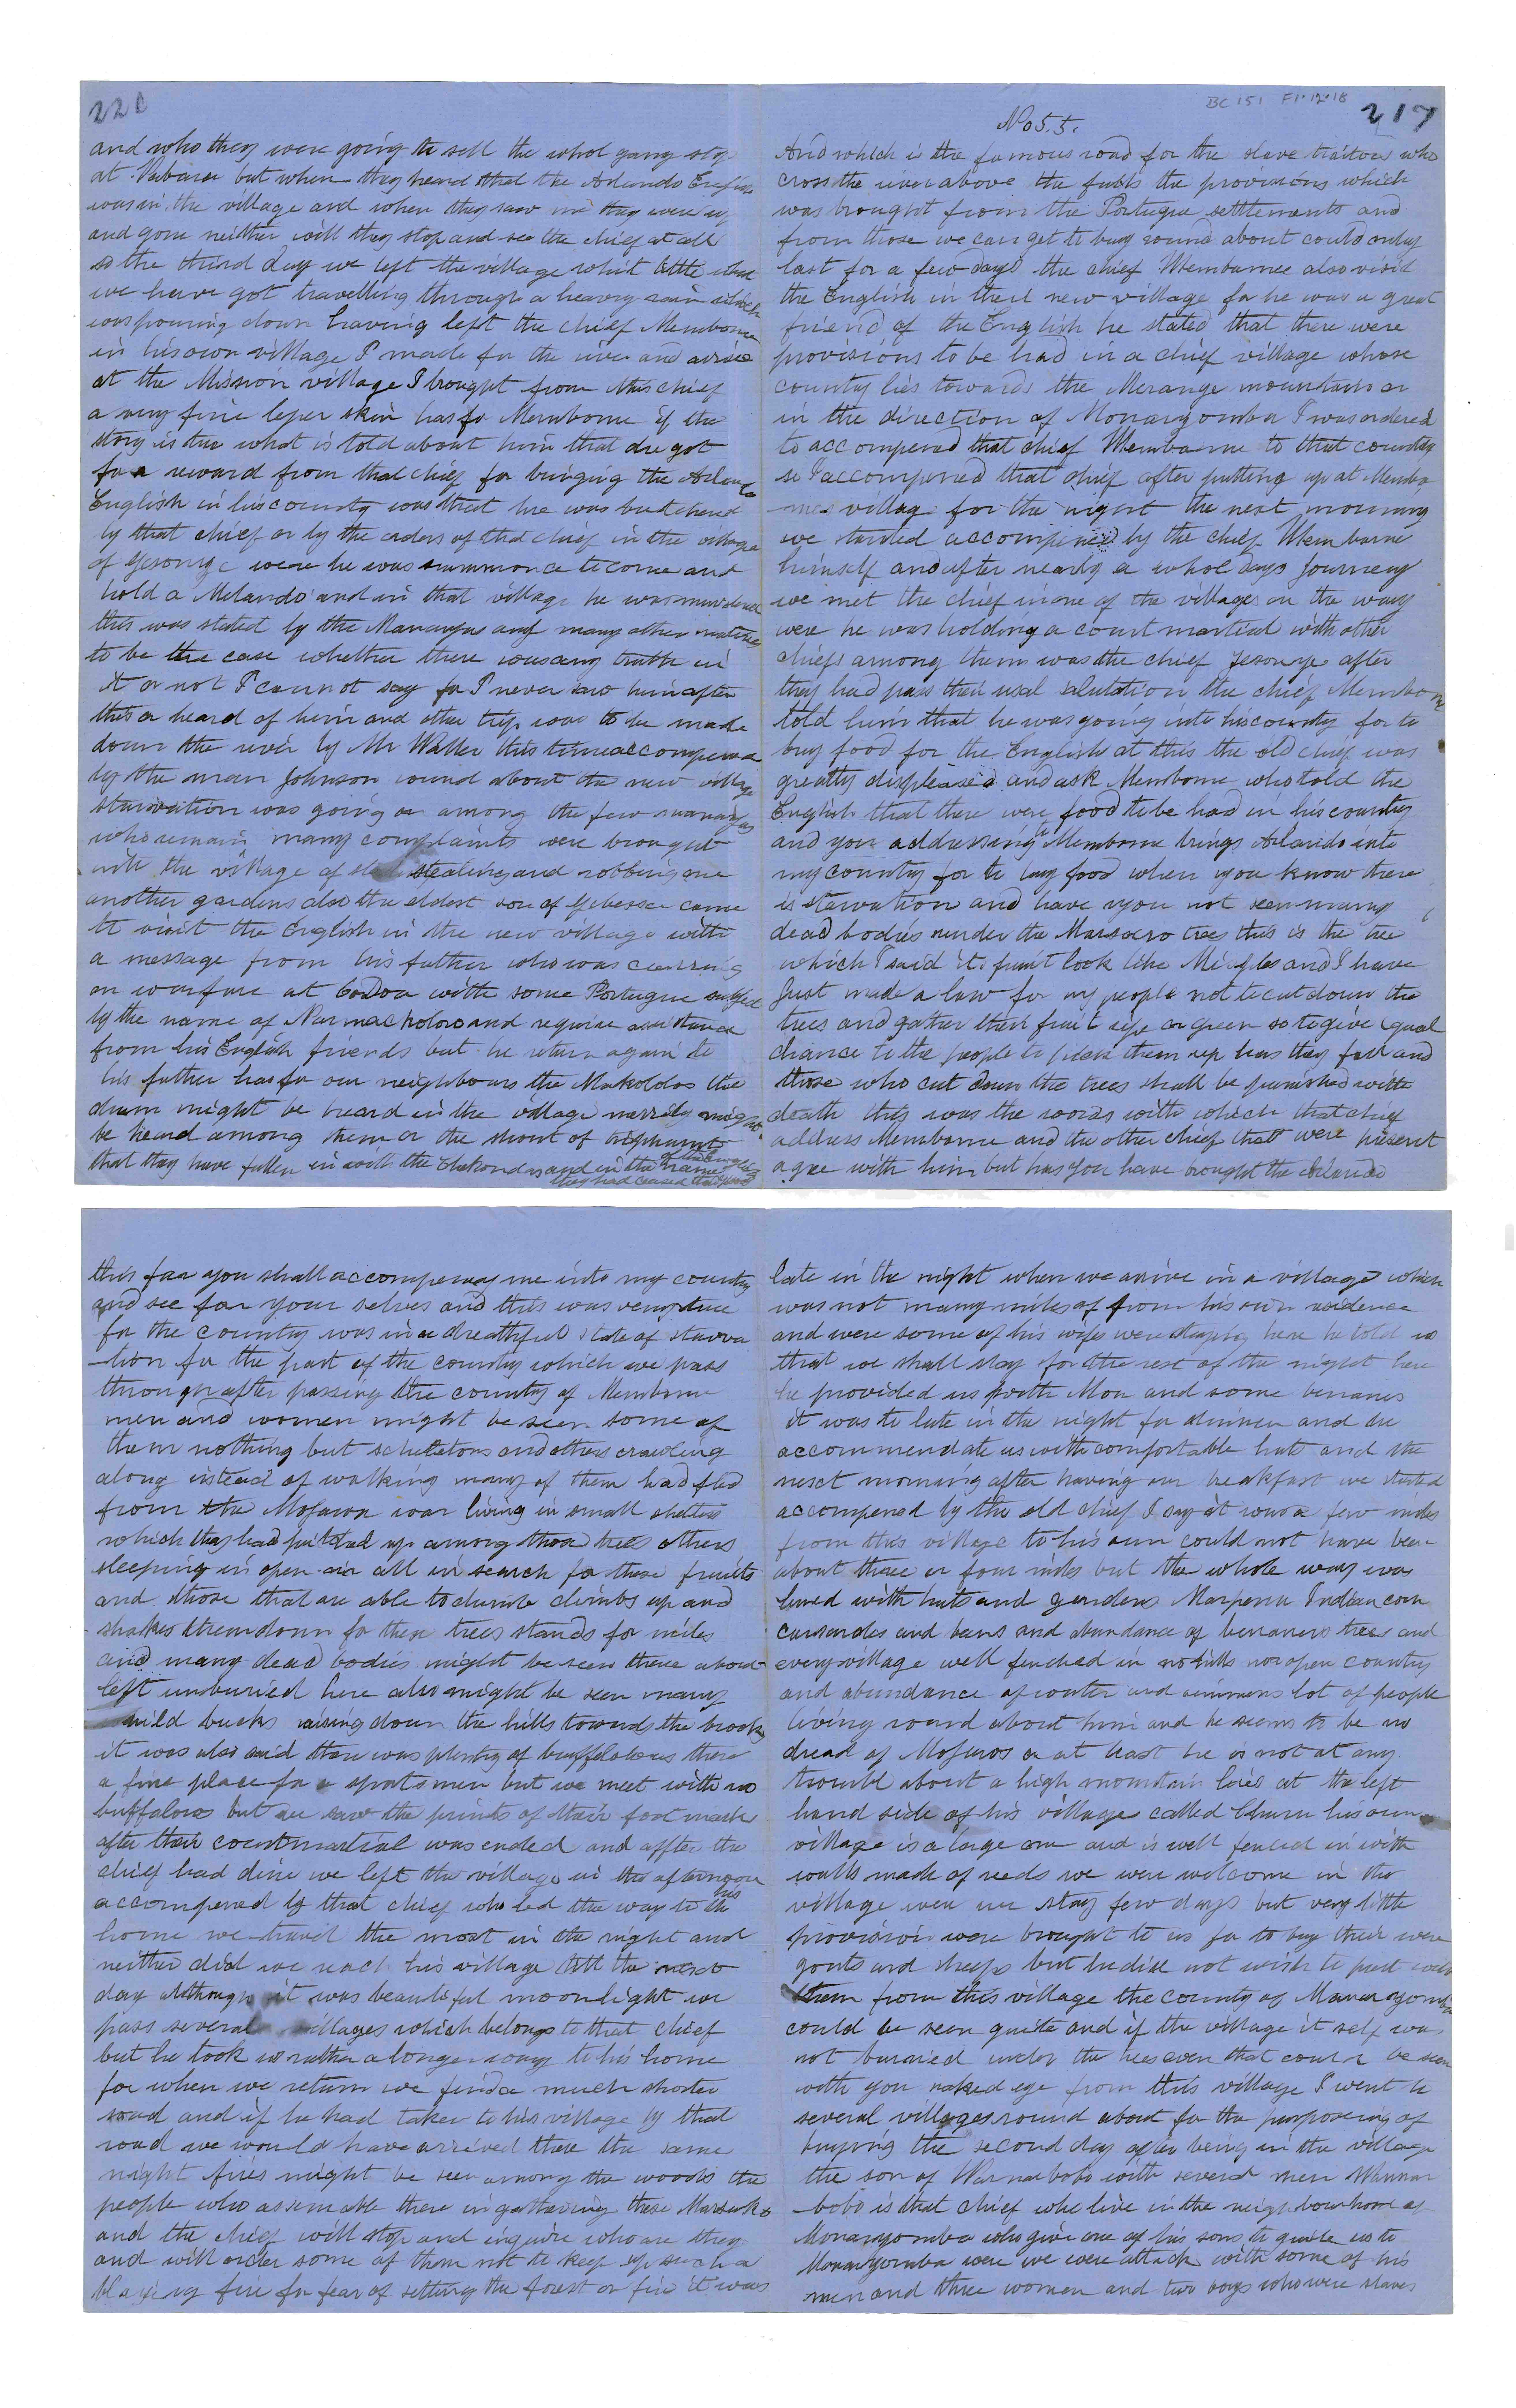 BC 151 F1.12.18
217
No 55.
And which is the famous road for the slave traitors who
cross the river above the falls the provisions which
was brought from the Portugue settlements and
from those we can get to buy round about could onley
last for a few days the chief Membarnee also visit
the English in their new village for he was a great
friend of the English he stated that there were
provisions to be had in a chief village whose
country lies towards the Merange mountains or
in the direction of Monaryomba I was ordered
to accompened that chief Membarne to that country
so I accompened that chief after putting up at Memba
-rnes village for the night the next morning
we started accompened by the chief Membarne
himself and after nearly a whole days Journey
we met the chief in one of the villages on the way
were he was holding a court martial with other
chiefs among them was the chief Jesonye after
they had pass their usal salutation the chief Membarne
told him that he was going into his country for to
buy food for the English at this the old chief was
greatly displeased and ask Membarne who told the
English that there were food to be had in his country
and you addressing Membarne brings Arlando into
my country for to buy food when you know there
is starvation and have you not seen many
dead bodies under the Marsoero trees this is the tree
which I said it fruit look like and I have
just made a law for my people not to cut down the
trees and gather their fruit ripe or green so to give equal
chance to the people to pick them up has they fall and
those who cut down the trees shall be punished with
death this was the words with which that chief
address Membarne and the other chief that were present
agree with him but has you have brought the Arlando
this far you shall accompeney me into my country
and see for your selves and this was very true
for the country was in a dreathful state of starva
-tion for the part of the country which we pass
through after passing the country of Membarne
men and women might be seen some of
them nothing but scheletons and others crawling
along instead of walking many of them had fled
from the Mofarwa war living in small shelters
which they had pitched up among those trees others
sleeping in open air all in search for these fruits
and those that are able to climb climbs up and
shakes them down for these trees stands for miles
and many dead bodies might be seen there about
left unburied here also might be seen many
wild bucks raising down the hills towards the brooks
it was also said there was plenty of buffelolows there
a fine place for a sportsmen but we meet with no
buffalows but we saw the prints of their foot marks
after their courtmartial was ended and affter the
chief had dine we left the village in the afternoon
accompened by that chief who led the way to his
home we travel the most in the night and
neither did we reach his village till the next
day although it was beautiful moonlight we
pass several villages which belongs to that chief
but he took us rather a longer way to his home
for when we return we find a much shorter
road and if he had taken to his village by that
road we would have arrived there the same
night fires might be seen among the woods the
people who assemable there in gathering these Marsuko
and the chief will stop and inquire who are they
and will order some of them not to keep up such a
blazeing fire for fear of setting the forest on fire it was
late in the night when we arrive in a village which
was not many miles of from his own residence
and were some of his wifes were staying here he told us
that we shall stay for the rest of the night here
he provided us with Mou and some benanes
it was to late in the night for dinner and he
accommendate us with comfortable huts and the
next morning after having our breakfast we started
accompened by the old chief I say it was a few miles
from this village to his own could not have been
about three or four miles but the whole way was
lined with huts and gardens Marperia Indian corn
carsardes and bens and abundance of benaners trees and
every village well fenched in no hills nor open country
and abundance of water and immens lot of people
living round about him and he seems to be no
dread of Mofuros or at least he is not at any
trouble about a high mountain lies at the left
hand side of his village called Churu his own
village is a large one and is well fenced in with
walls made of reeds we were welcome in the
village were we stay few days but very little
provisions were brought to us for to buy their were
goats and sheeps but he did not wish to part with
them from this village the country of Manaryomba
could be seen quite and if the village it self was
not burried under the trees even that could be seen
with you naked eye from this village I went to
several villages round about for the purposeing of
buying the second day after being in the village
the son of Warnarbobo with several men Warnar
-bobo is that chief who live in the neighbourhood of
Monaryomba who give one of his sons to guide us to
Monaryomba were we were attack with some of his
men and three women and two boys who were slaves
220
and who they were going to sell the whol gang stop
at but when they heard that the Arlando English
was in the village and when they saw me they were up
and gone neither will they stop and see the chief at all
so the third day we left the village whit little what
we have got travelling through a heavy rain which
was pouring down having left the chief Membarne
in his own village I made for the river and arrive
at the Mission village I brought from this chief
a very fine leper skin has for Membarne if the
story is true what is told about him that he got
for a reward from that chief for bringing the Arlando
English in his country was that he was butchered
by that chief or by the orders of that chief in the village
of Jesonye were he was summonce to come and
hold a Melando and in that village he was murdered
this was stated by the Mananja and many other natives
to be the case whether there was any truth in
it or not I cannot say for I never saw him after
this or heard of him and other trip was to be made
down the river by Mr Waller this time accompened
by the man Johnson round about the new village
starivation was going on among the few mananjas
who remain many complaints were brought
into the village of stealing and robbing one
another gardens also the eldest son of Gebessa came
to visit the English in the new village with
a message from his father who was carring
on warfare at with some Portugue subject
by the name of Narmackoloro and require assistance
from his English friends but he return again to
his father has for our neighbours the Makololos the
drum might be heard in the village merrily might
be heard among them or the shout of triphumt
that they have fallen in with the and in the name of the English
they had ceased them